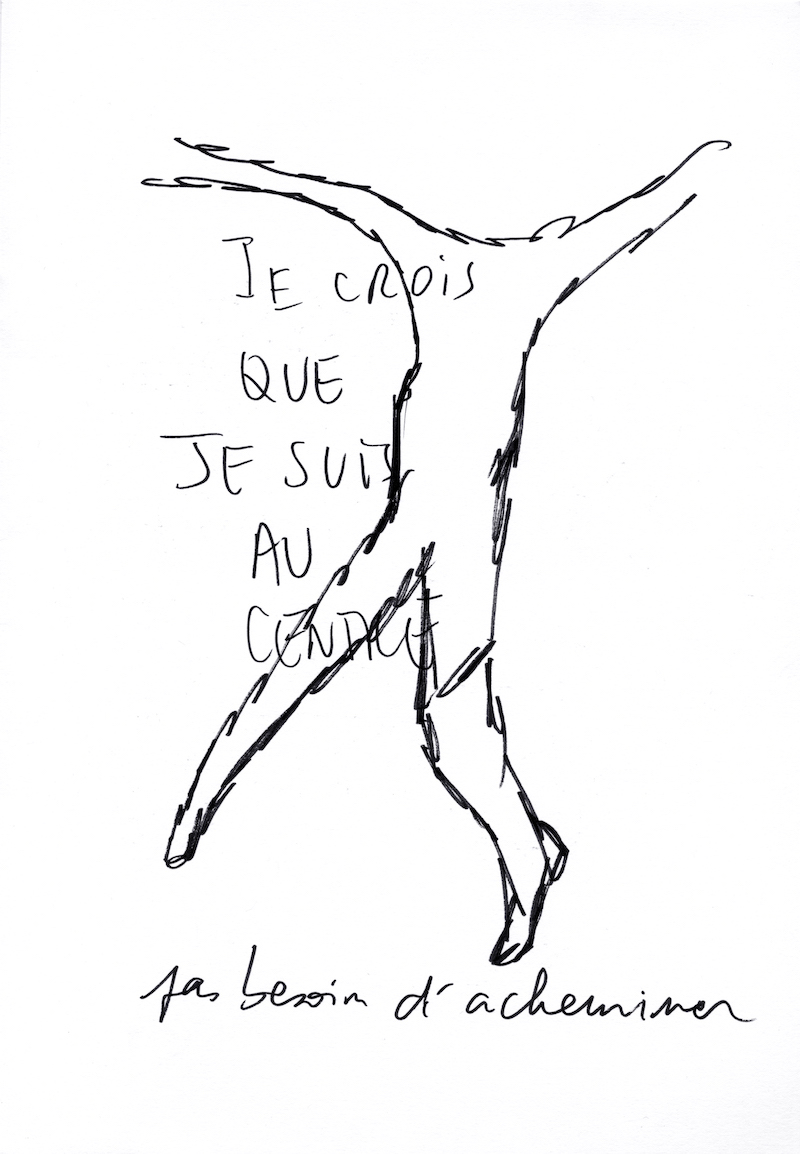 JE CROIS
QUE
JE SUIS
AU
CENTRE
pas besoin d'acheminer